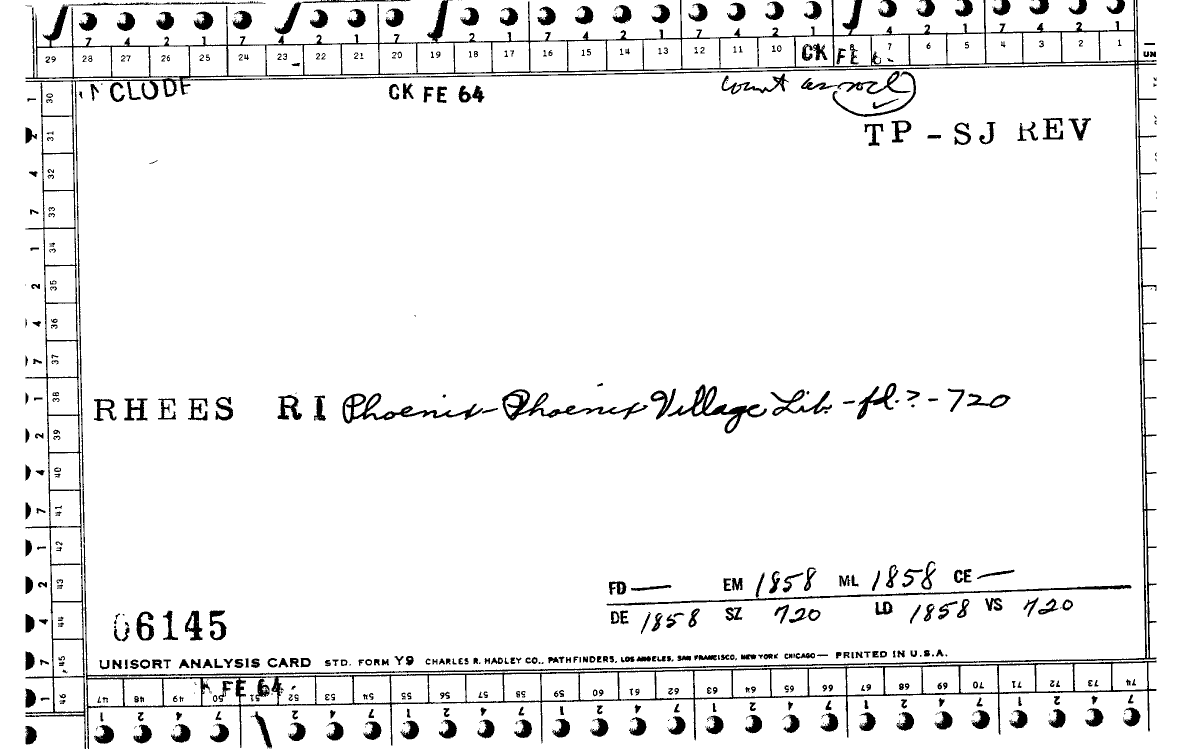 7 4 2 1 7 4 2 1 7 4 2 1 7 4 2 1 7 4 2 1 7 4 2 1 7 4 2 1
29 28 27 26 25 24 23 22 21 20 19 18 17 16 15 14 13 12 11 10 CK FE 7 6 5 4 3 2 1 UN
INCLUDE CK FE 64 count as soc
TP - SJ REV
1 30
2 31
4 32
7 33
1 34
2 35
4 36
7 37
1 38
2 39
4 40
7 41
1 42
2 43
4 44
7 45
1 46
RHEES RI Phoenix - Phoenix Village Lib. - fd. ? - 720
FD — EM 1858 ML 1858 CE —
DE 1858 SZ 720 LD 1858 VS 720
06145
UNISORT ANALYSIS CARD STD. FORM Y9 CHARLES R. HADLEY CO., PATHFINDERS, LOS ANGELES, SAN FRANCISCO, NEW YORK CHICAGO — PRINTED IN U.S.A.
FE 64
47 48 49 50 51 52 53 54 55 56 57 58 59 60 61 62 63 64 65 66 67 68 69 70 71 72 73 74
1 2 4 7 2 4 7 1 2 4 7 1 2 4 7 1 2 4 7 1 2 4 7 1 2 4 7